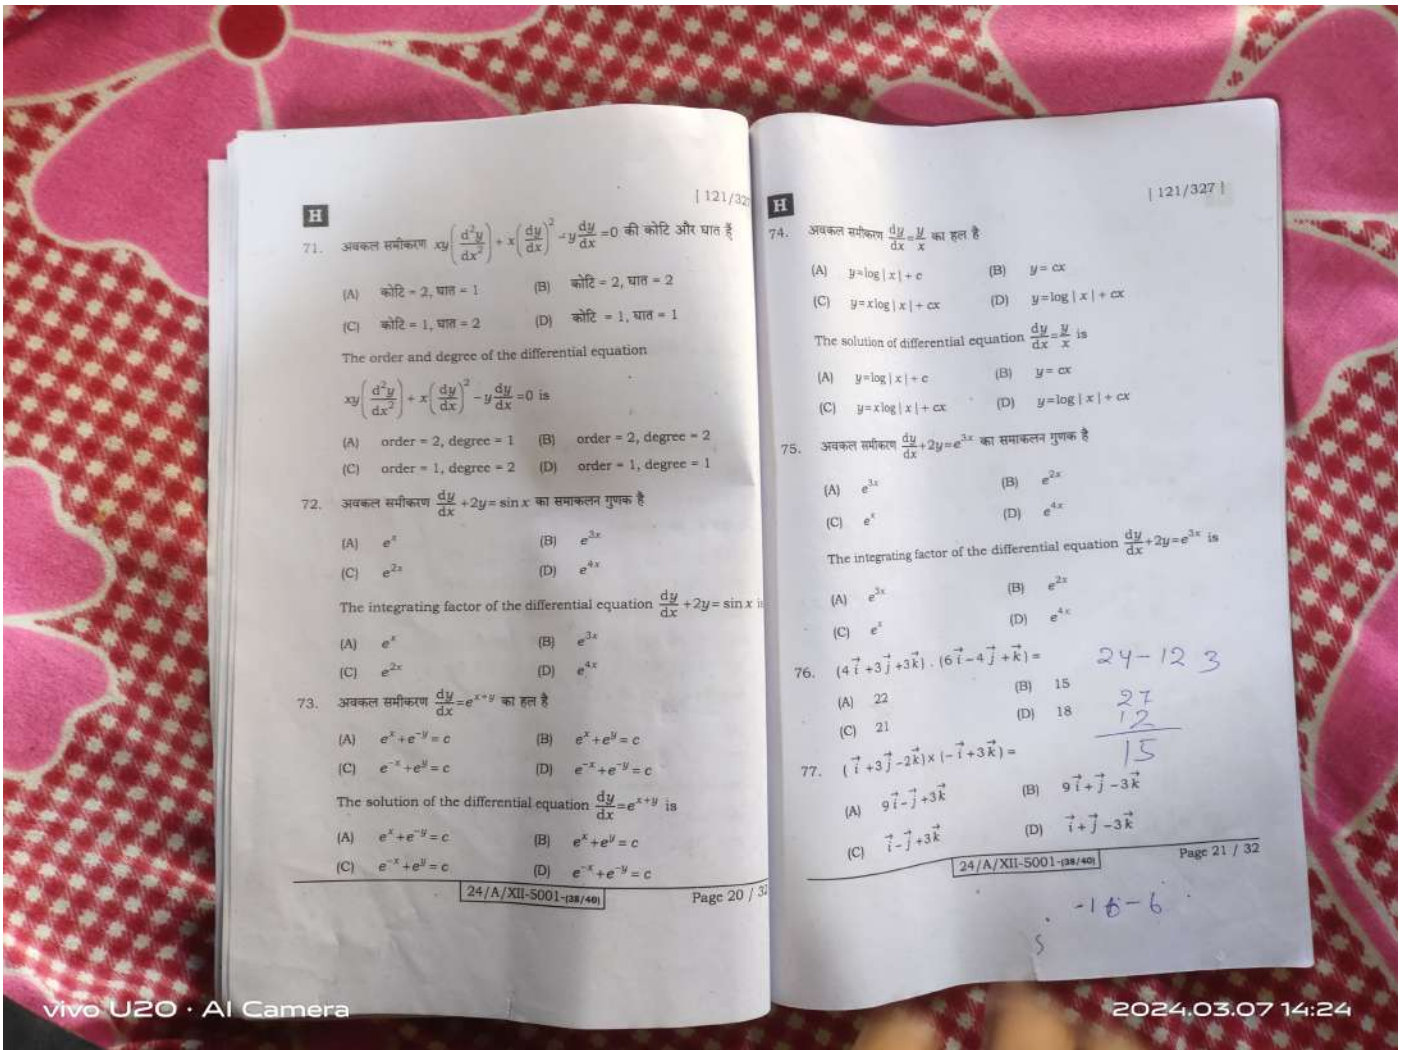 H
[ 121/327
71. अवकल समीकरण xy(d²y/dx²) + x(dy/dx)² - y dy/dx = 0 की कोटि और घात हैं
(A) कोटि = 2, घात = 1 (B) कोटि = 2, घात = 2
(C) कोटि = 1, घात = 2 (D) कोटि = 1, घात = 1
The order and degree of the differential equation
xy(d²y/dx²) + x(dy/dx)² - y dy/dx = 0 is
(A) order = 2, degree = 1 (B) order = 2, degree = 2
(C) order = 1, degree = 2 (D) order = 1, degree = 1
72. अवकल समीकरण dy/dx + 2y = sin x का समाकलन गुणक है
(A) eˣ (B) e³ˣ
(C) e²ˣ (D) e⁴ˣ
The integrating factor of the differential equation dy/dx + 2y = sin x is
(A) eˣ (B) e³ˣ
(C) e²ˣ (D) e⁴ˣ
73. अवकल समीकरण dy/dx = eˣ⁺ʸ का हल है
(A) eˣ + e⁻ʸ = c (B) eˣ + eʸ = c
(C) e⁻ˣ + eʸ = c (D) e⁻ˣ + e⁻ʸ = c
The solution of the differential equation dy/dx = eˣ⁺ʸ is
(A) eˣ + e⁻ʸ = c (B) eˣ + eʸ = c
(C) e⁻ˣ + eʸ = c (D) e⁻ˣ + e⁻ʸ = c
24/A/XII-5001-(38/40) Page 20 / 32
H
[ 121/327 ]
74. अवकल समीकरण dy/dx = y/x का हल है
(A) y=log | x | + c (B) y = cx
(C) y = x log | x | + cx (D) y=log | x | + cx
The solution of differential equation dy/dx = y/x is
(A) y=log | x | + c (B) y = cx
(C) y = x log | x | + cx (D) y=log | x | + cx
75. अवकल समीकरण dy/dx + 2y = e³ˣ का समाकलन गुणक है
(A) e³ˣ (B) e²ˣ
(C) eˣ (D) e⁴ˣ
The integrating factor of the differential equation dy/dx + 2y = e³ˣ is
(A) e³ˣ (B) e²ˣ
(C) eˣ (D) e⁴ˣ
76. (4i⃗ + 3j⃗ + 3k⃗) . (6i⃗ - 4j⃗ + k⃗) = 24-12 3
(A) 22 (B) 15 27
(C) 21 (D) 18 12
15
77. (i⃗ + 3j⃗ - 2k⃗) × (-i⃗ + 3k⃗) =
(A) 9i⃗ - j⃗ + 3k⃗ (B) 9i⃗ + j⃗ - 3k⃗
(C) i⃗ - j⃗ + 3k⃗ (D) i⃗ + j⃗ - 3k⃗
24/A/XII-5001-(38/40) Page 21 / 32
vivo U20 · AI Camera
2024.03.07 14:24